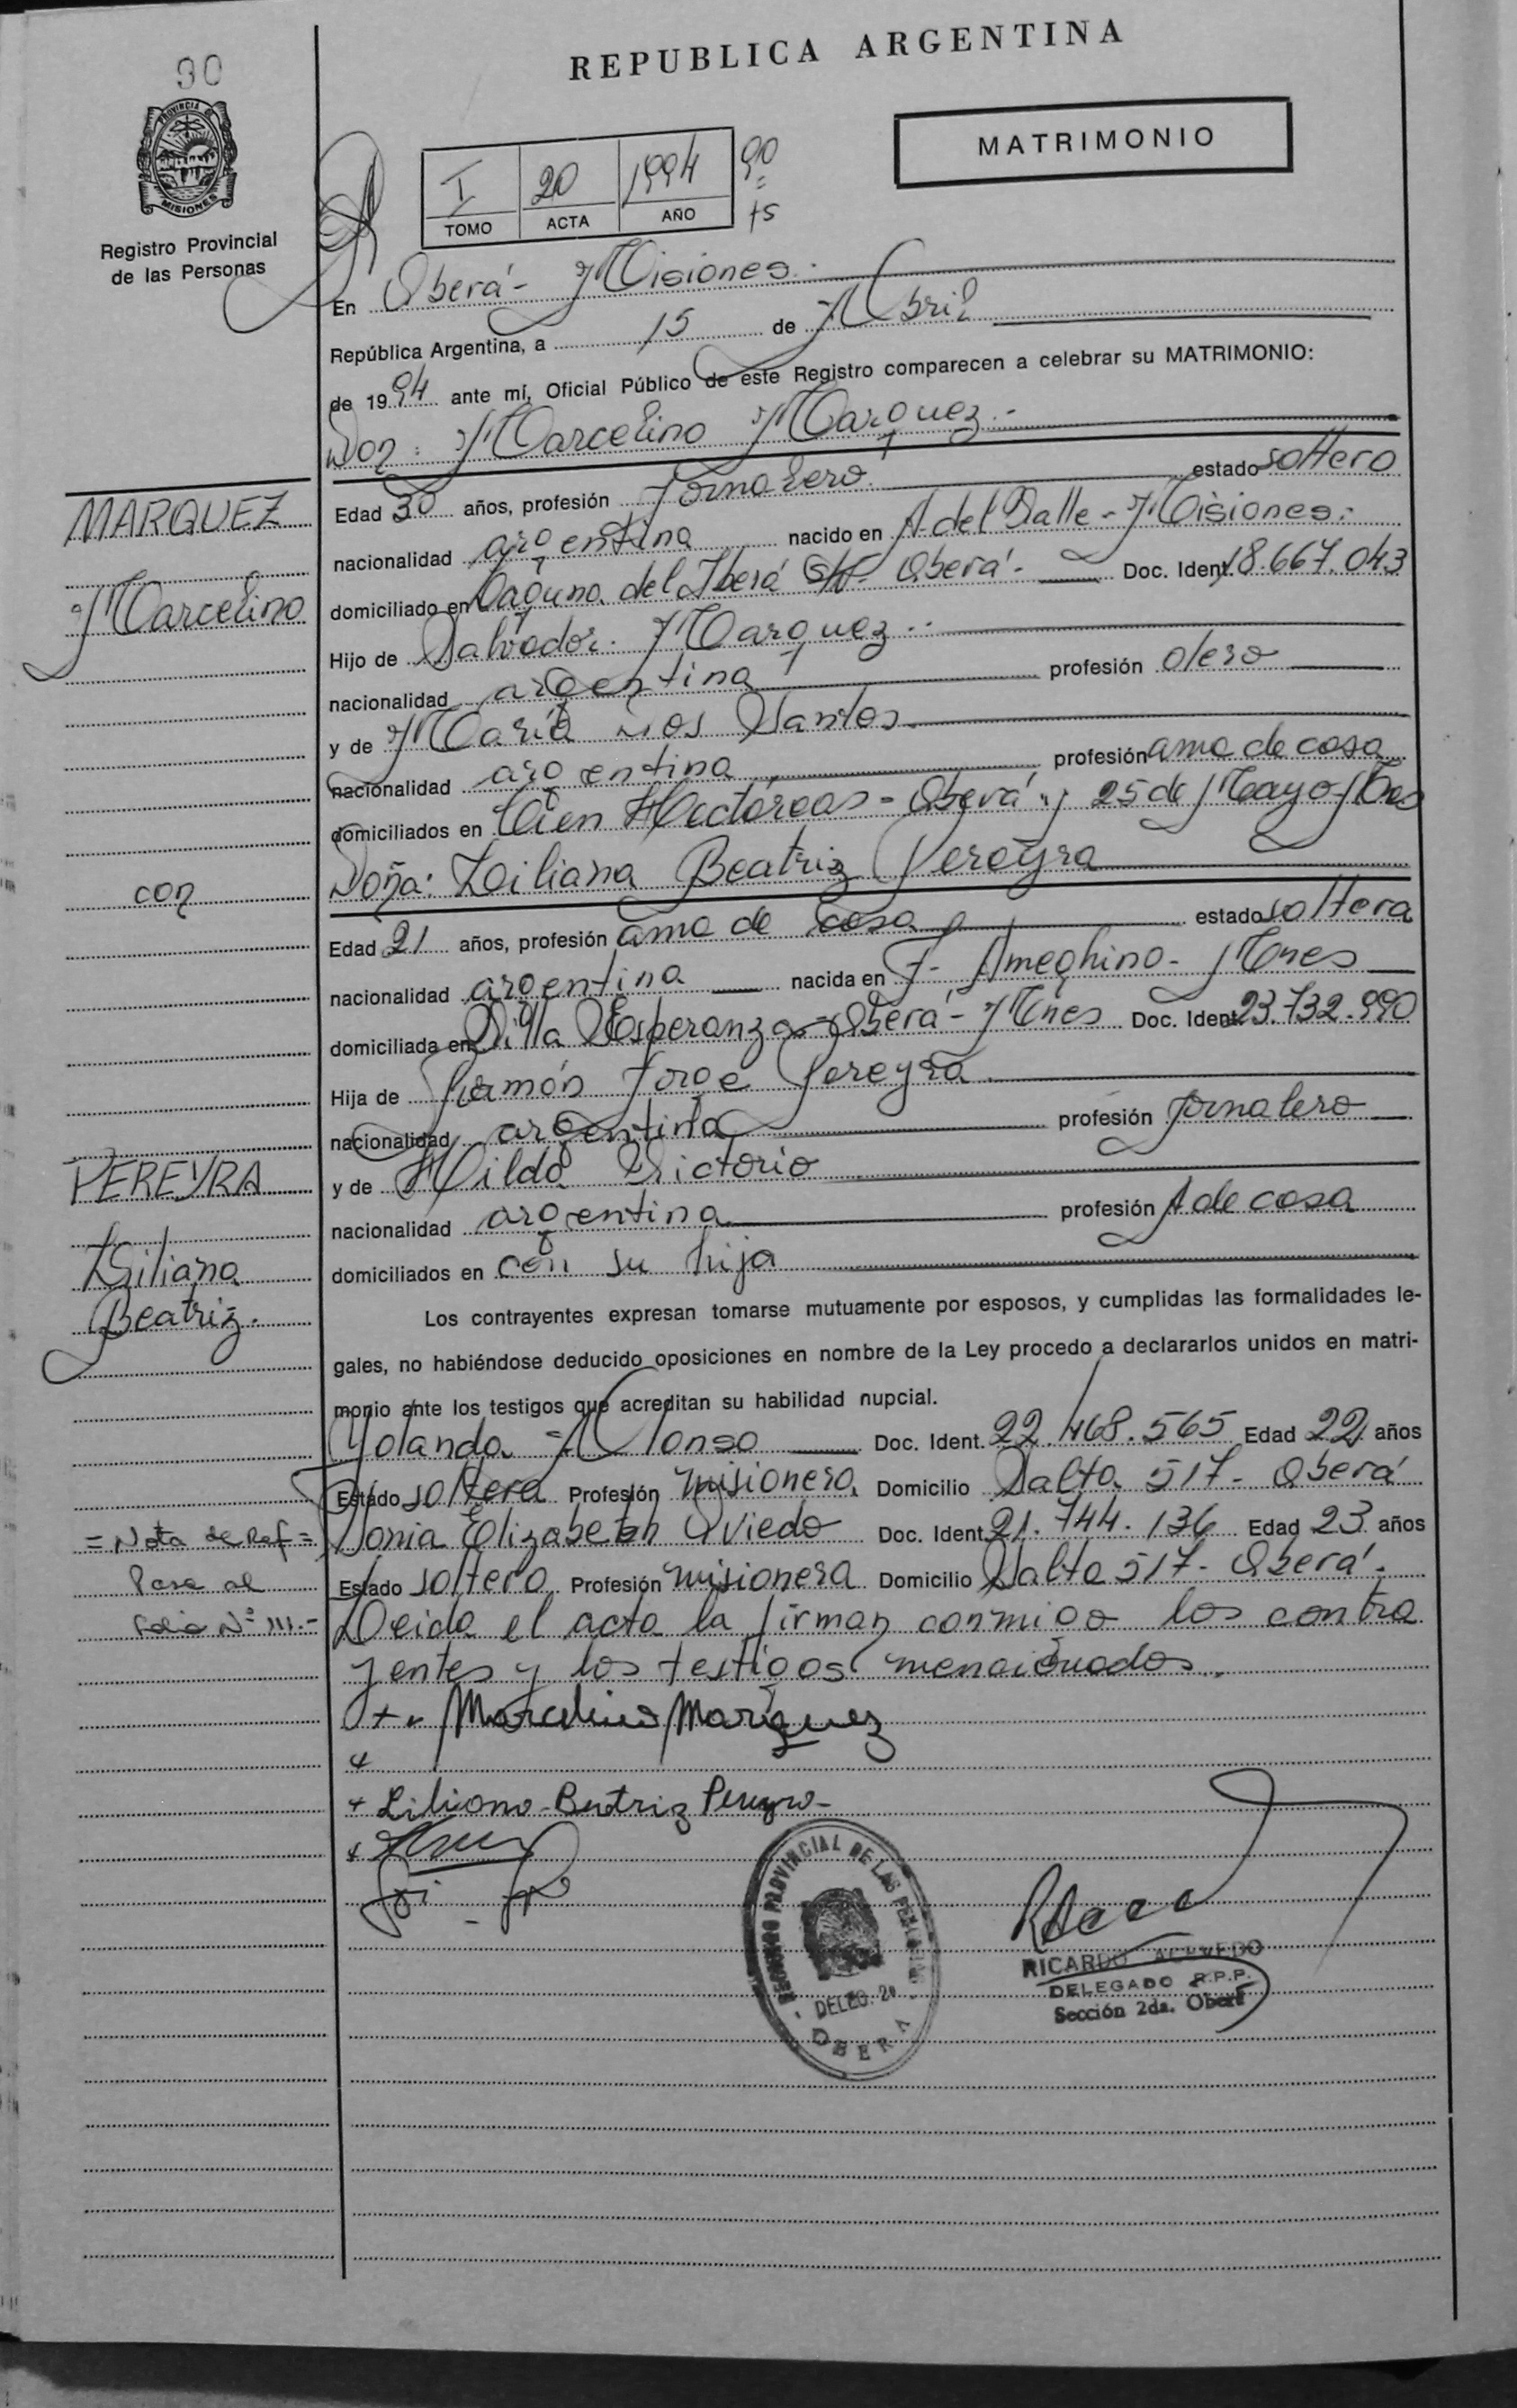 90
REPUBLICA ARGENTINA
PROVINCIA DE
MISIONES
Registro Provincial
de las Personas
MATRIMONIO
I 20 1994 90
TOMO ACTA AÑO 15
En Oberá - Misiones.-
República Argentina, a 15 de Abril
de 1994 ante mí, Oficial Público de este Registro comparecen a celebrar su MATRIMONIO:
Don: Marcelino Marquez.-
MARQUEZ
Marcelino
Edad 30 años, profesión Jornalero. estado soltero
nacionalidad argentina nacido en A del Valle - Misiones.
domiciliado en Laguna del Iberá S/N- Oberá.- Doc. Ident. 18.667.043
Hijo de Salvador Marquez.-
nacionalidad argentina profesión olero
y de Maria Dos Santos
nacionalidad argentina profesión ama de casa
domiciliados en Cien Hectáreas - Oberá y 25 de Mayo Mnes
con
Doña: Liliana Beatriz Pereyra
Edad 21 años, profesión ama de casa estado soltera
nacionalidad argentina nacida en F- Ameghino- Mnes
domiciliada en Villa Esperanza - Oberá - Mnes Doc. Ident. 23.732.990
Hija de Ramón Jorge Pereyra
nacionalidad argentina profesión Jornalero
PEREYRA
Liliana
Beatriz.
y de Hilda Victorio
nacionalidad argentina profesión A de casa
domiciliados en con su hija
Los contrayentes expresan tomarse mutuamente por esposos, y cumplidas las formalidades le-
gales, no habiéndose deducido oposiciones en nombre de la Ley procedo a declararlos unidos en matri-
monio ante los testigos que acreditan su habilidad nupcial.
Yolanda Alonso Doc. Ident. 22.468.565 Edad 22 años
Estado soltera Profesión misionera Domicilio Salta 517- Oberá
= Nota de Ref =
Pase al
Folio Nº 111.-
Sonia Elizabeth Oviedo Doc. Ident. 21.744.136 Edad 23 años
Estado soltera Profesión misionera Domicilio Salta 517- Oberá.
Leida el acta la firman conmigo los contra
yentes y los testigos mencionados.
Marcelino Marquez
Liliana Beatriz Pereyra
REGISTRO PROVINCIAL DE LAS PERSONAS
DELEG. 2a
OBERA
RICARDO ACEVEDO
DELEGADO R.P.P.
Sección 2da. Oberá